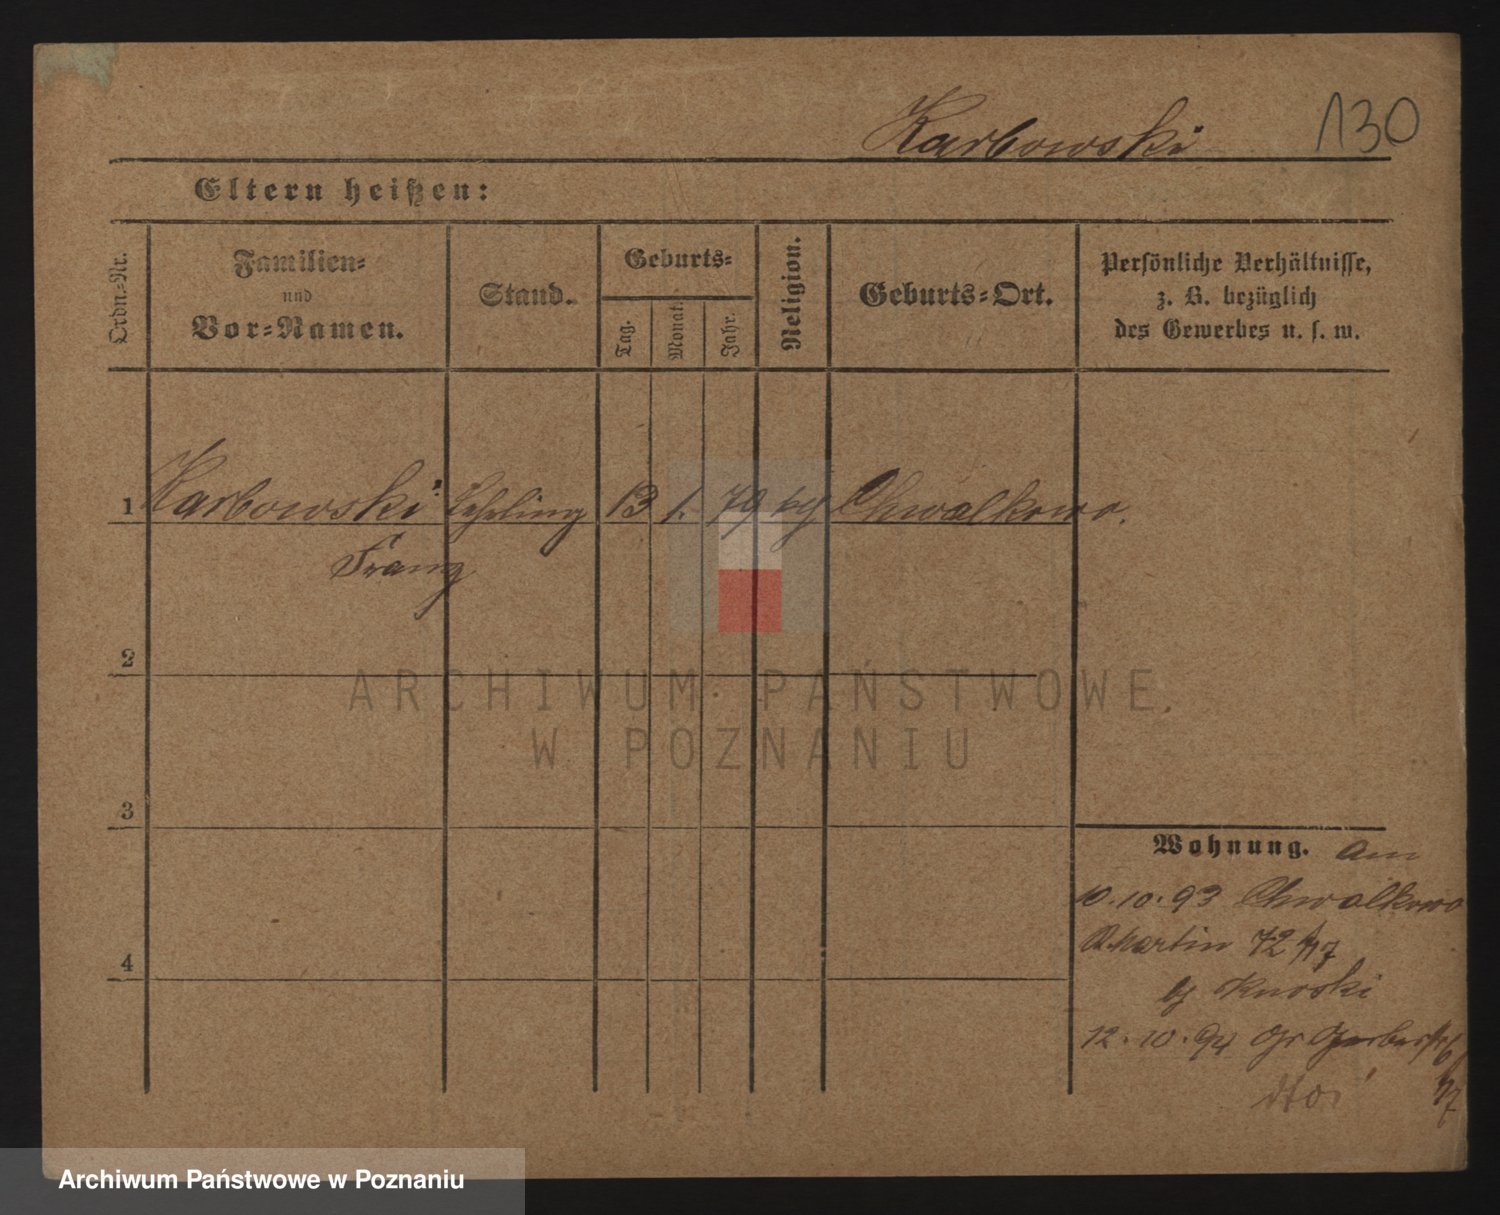 Karbowski 130
Eltern heißen:
Ordn.-Nr.
Familien-
und
Vor-Namen.
Stand.
Geburts-
Tag.
Monat.
Jahr.
Religion.
Geburts-Ort.
Persönliche Verhältnisse,
z. B. bezüglich
des Gewerbes u. s. w.
1 Karbowski Lehrling 13 1. 79 kg Chwalkowo.
Franz
2
3
4
Wohnung. am
10.10.93 Chwalkowo
St. Martin 72
by
12.10.94 Gr Gerberstr 6
dto
ARCHIWUM PAŃSTWOWE
W POZNANIU
Archiwum Państwowe w Poznaniu